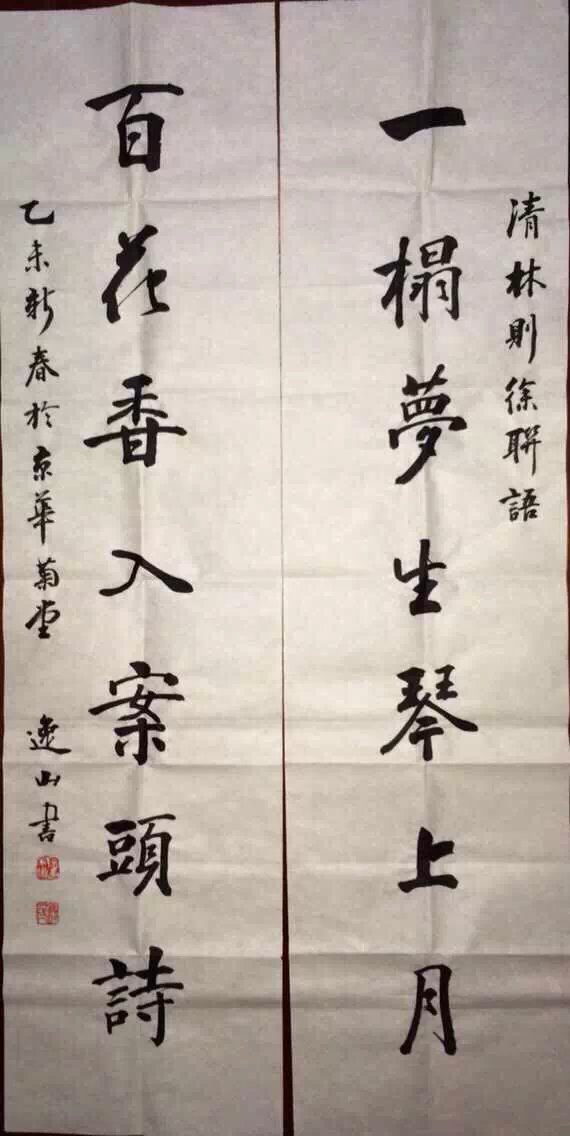 清林則徐聯語
一榻夢生琴上月
百花香入案頭詩
乙未新春於京華菊堂 逸山書